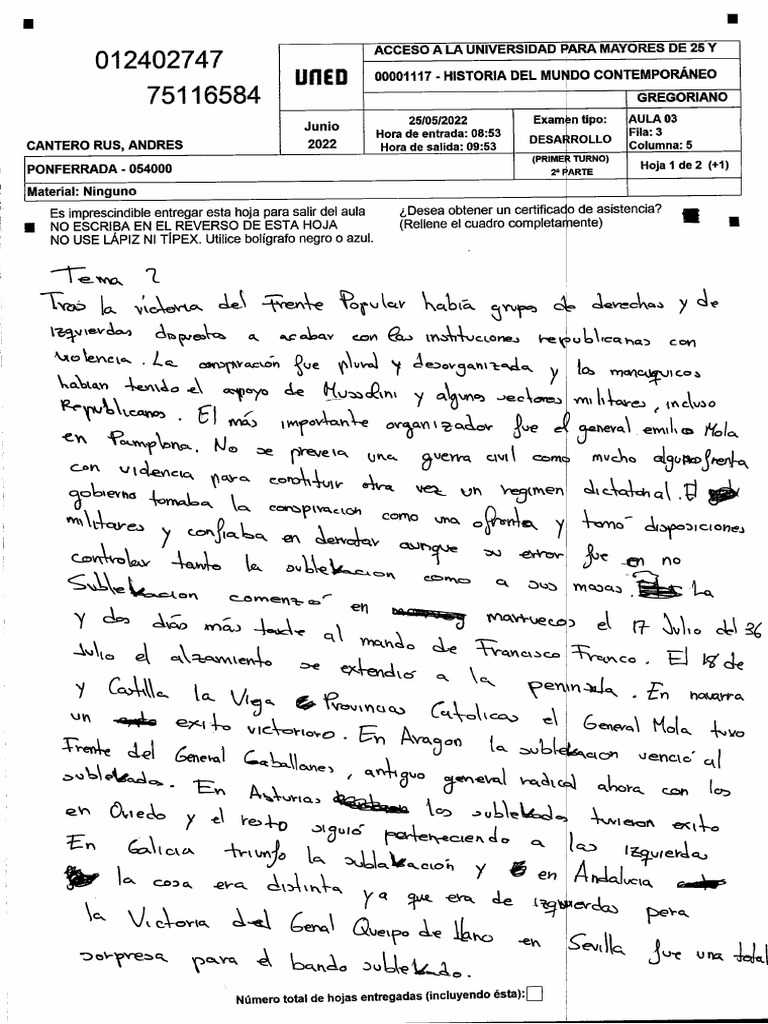 012402747
75116584
UNED
ACCESO A LA UNIVERSIDAD PARA MAYORES DE 25 Y
00001117 - HISTORIA DEL MUNDO CONTEMPORÁNEO
GREGORIANO
Junio
2022
25/05/2022
Hora de entrada: 08:53
Hora de salida: 09:53
Examen tipo:
DESARROLLO
(PRIMER TURNO)
2ª PARTE
AULA 03
Fila: 3
Columna: 5
Hoja 1 de 2 (+1)
CANTERO RUS, ANDRES
PONFERRADA - 054000
Material: Ninguno
Es imprescindible entregar esta hoja para salir del aula
NO ESCRIBA EN EL REVERSO DE ESTA HOJA
NO USE LÁPIZ NI TÍPEX. Utilice bolígrafo negro o azul.
¿Desea obtener un certificado de asistencia?
(Rellene el cuadro completamente)
Tema 2
Tras la victoria del Frente Popular había grupos de derechas y de
izquierdas dispuestos a acabar con las instituciones republicanas con
violencia. La conspiración fue plural y desorganizada y los monarquicos
habian tenido el apoyo de Mussolini y algunos sectores militares, incluso
Republicanos. El más importante organizador fue el general emilio Mola
en Pamplona. No se preveia una guerra civil como mucho alguna frenta
con violencia para constituir otra vez un regimen dictatorial. El
gobierno tomaba la conspiracion como una afronta y tomó disposiciones
militares y confiaba en derrotar aunque su error fue en no
controlar tanto la sublevacion como a sus masas. La
Sublevacion comenzó en marruecos el 17 Julio del 36
y dos dias más tarde al mando de Francisco Franco. El 18 de
Julio el alzamiento se extendió a la peninsula. En navarra
y Castilla la Vieja Provincias Catolicas el General Mola tuvo
un exito victorioro. En Aragon la sublevacion venció al
Frente del General Caballanes, antiguo general radical ahora con los
sublevados. En Asturias los sublevados tuvieron exito
en Oviedo y el resto siguió perteneciendo a las izquierdas
En Galicia triunfo la sublevación y en Andalucia
la cosa era distinta ya que era de izquierdas pera
la Victoria del Genal Queipo de llano en Sevilla fue una total
sorpresa para el bando sublevado.
Número total de hojas entregadas (incluyendo ésta):